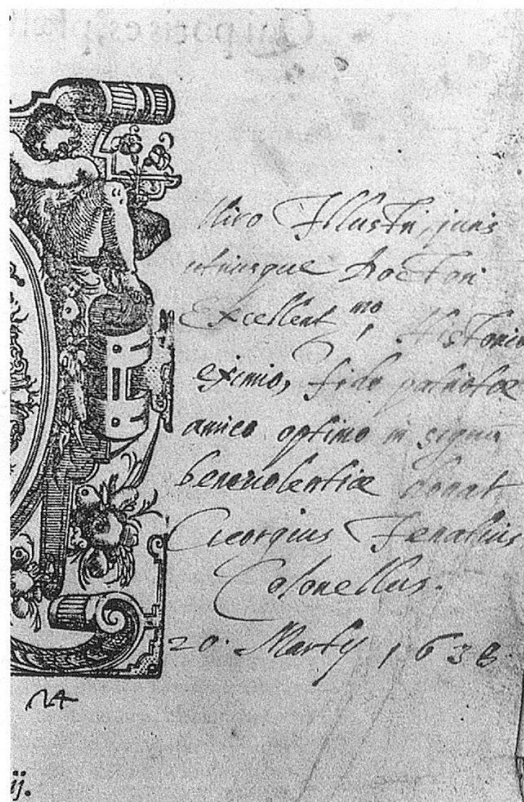 Viro Illustri, juris
utriusque Doctori
Excellent^mo, Historico
eximio, fido patriotæ
amico optimo in signum
benevolentiæ donat
Georgius Jenatius
Colonellus.
20. Martij 1638.
ij.